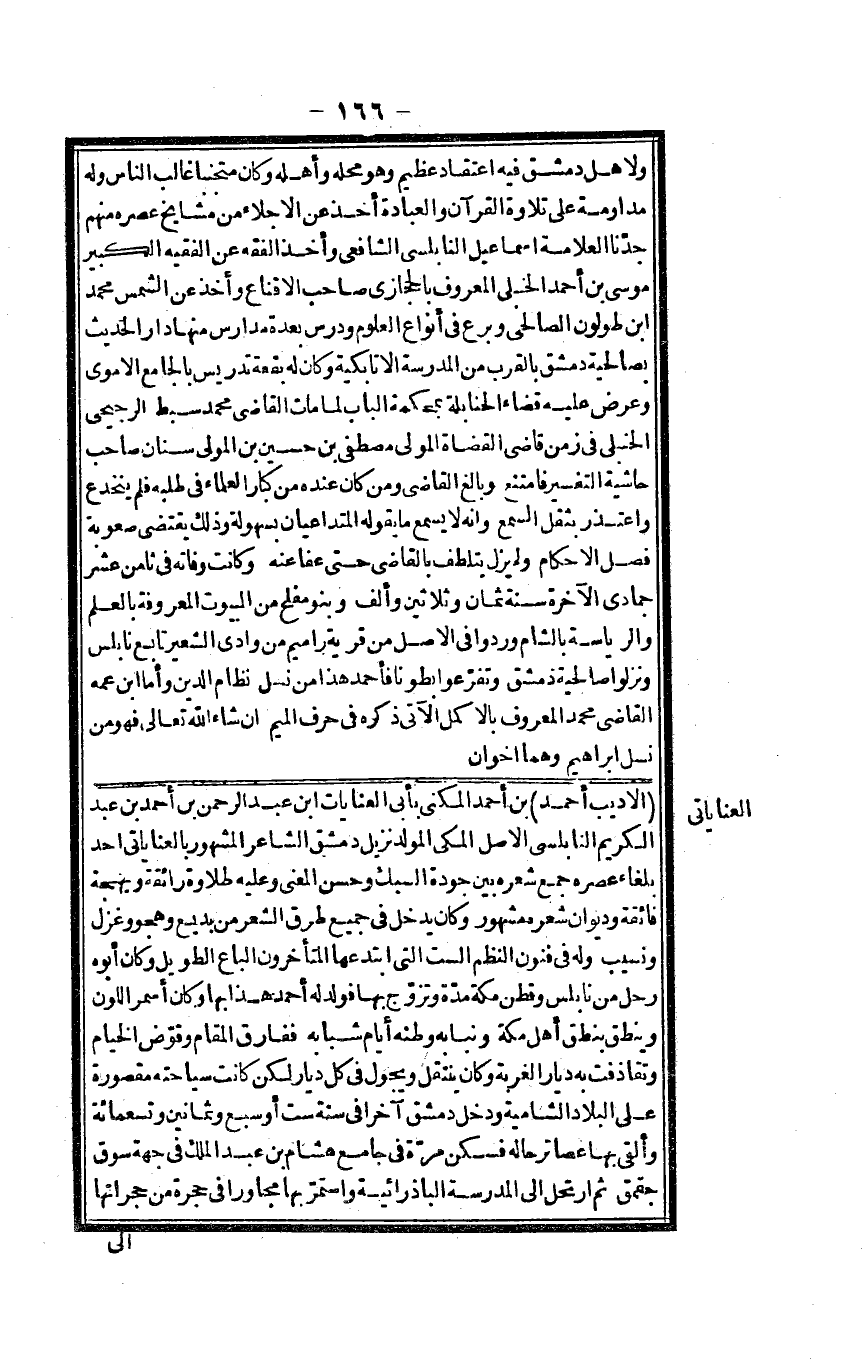 - ١٦٦ -
ولاهل دمشق فيه اعتقاد عظيم وهو محله وأهله وكان متجنبا غالب الناس وله
مداومة على تلاوة القرآن والعبادة أخذ عن الاجلاء من مشايخ عصره منهم
جدّنا العلامة اسماعيل النابلسى الشافعى وأخذ الفقه عن الفقيه الكبير
موسى بن أحمد الحنبلى المعروف بالحجازى صاحب الاقناع وأخذ عن الشمس محمد
ابن طولون الصالحى وبرع فى أنواع العلوم ودرس بعدة مدارس منها دار الحديث
بصالحية دمشق بالقرب من المدرسة الاتابكية وكان له بقعة تدريس بالجامع الاموى
وعرض عليه قضاء الحنابلة بمحكمة الباب لما مات القاضى محمد سبط الرجيحى
الحنبلى فى زمن قاضى القضاة المولى مصطفى بن حسين بن المولى سنان صاحب
حاشية التفسير فامتنع وبالغ القاضى ومن كان عنده من كبار العلماء فى طلبه فلم ينخدع
واعتذر بثقل السمع وانه لا يسمع ما يقوله المتداعيان بسهولة وذلك يقتضى صعوبة
فصل الاحكام ولم يزل يتلطف بالقاضى حتى عفا عنه وكانت وفاته فى ثامن عشر
جمادى الآخرة سنة ثمان وثلاثين وألف وبنو مفلح من البيوت المعروفة بالعلم
والرياسة بالشام وردوا فى الاصل من قرية راميم من وادى الشعير تابع نابلس
ونزلوا صالحية دمشق وتفرّعوا بطونا فأحمد هذا من نسل نظام الدين وأما ابن عمه
القاضى محمد المعروف بالاكمل الآتى ذكره فى حرف الميم ان شاء الله تعالى فهو من
نسل ابراهيم وهما اخوان
(الاديب أحمد) بن أحمد المكنى بأبى العنايات ابن عبد الرحمن بن أحمد بن عبد
العناياتى
الكريم النابلسى الاصل المكى المولد نزيل دمشق الشاعر المشهور بالعناياتى احد
بلغاء عصره جمع شعره بين جودة السبك وحسن المعنى وعليه طلاوة رائقة وبهجة
فائقة وديوان شعره مشهور وكان يدخل فى جميع طرق الشعر من بديع وهجو وغزل
ونسيب وله فى فنون النظم الست التى ابتدعها المتأخرون الباع الطويل وكان أبوه
رحل من نابلس وقطن مكة مدّة وتزوّج بها فولد له أحمد هذا بها وكان أسمر اللون
وينطق بنطق أهل مكة ونبا به وطنه أيام شبابه ففارق المقام وقوّض الخيام
وتقاذفت به ديار الغربة وكان يتنقل ويجول فى كل ديار لكن كانت سياحته مقصورة
على البلاد الشامية ودخل دمشق آخرا فى سنة ست أو سبع وثمانين وتسعمائة
وألقى بها عصا ترحاله فسكن مرّة فى جامع هشام بن عبد الملك فى جهة سوق
جقمق ثم ارتحل الى المدرسة الباذرائية واستمرّ بها مجاورا فى حجرة من حجراتها
الى